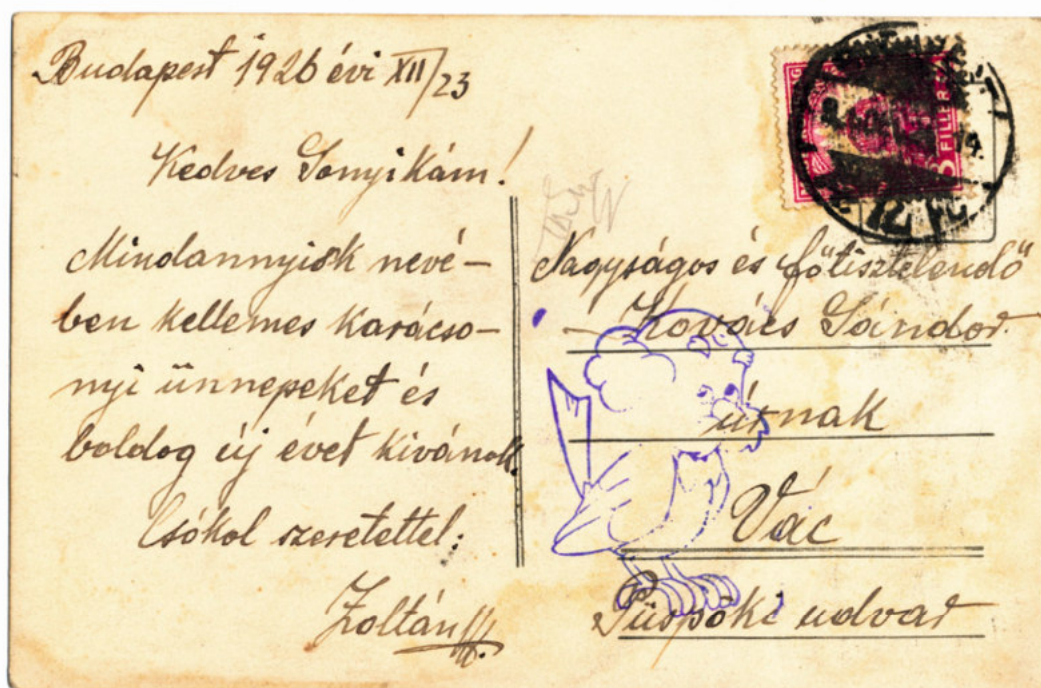 Budapest 1926 évi XII/23
Kedves Sanyikám!
Mindannyiók nevé-
ben kellemes karácso-
nyi ünnepeket és
boldog új évet kivánok.
Csókol szeretettel:
Zoltán
Nagyságos és főtisztelendő
- Kovács Sándor
úrnak
Vác
Püspöki udvar
FILLER